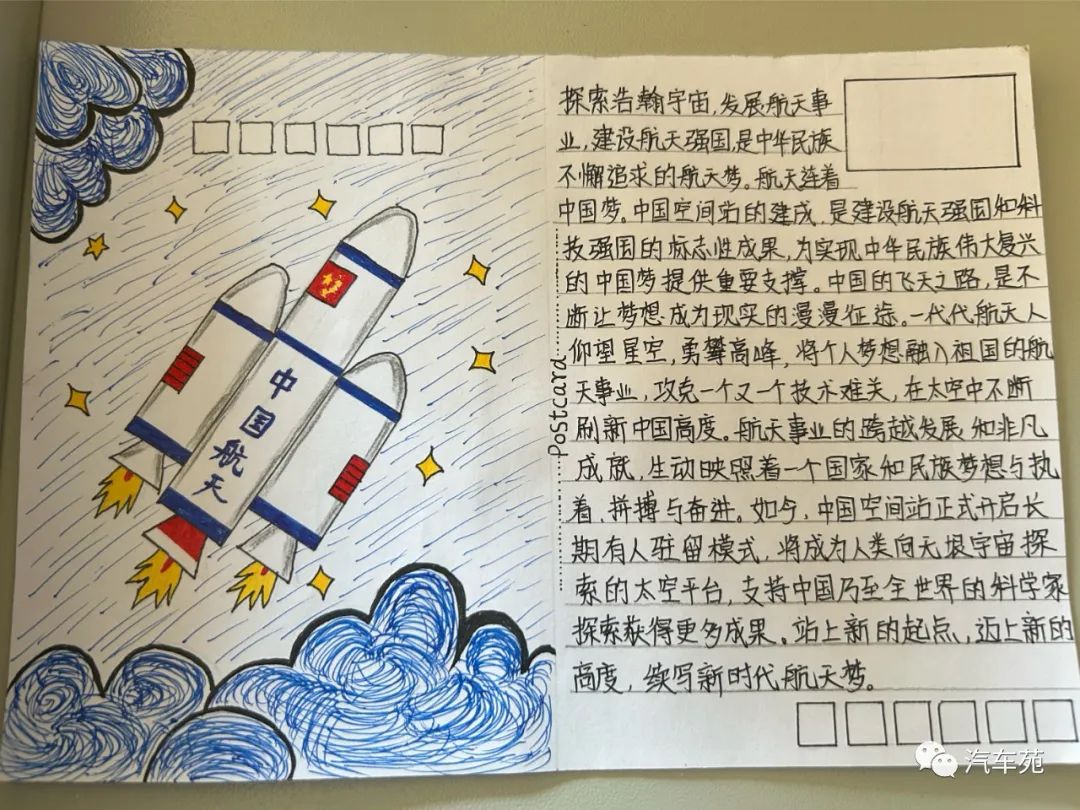 中国航天
Postcard
探索浩瀚宇宙,发展航天事
业,建设航天强国,是中华民族
不懈追求的航天梦。航天连着
中国梦。中国空间站的建成,是建设航天强国和科
技强国的标志性成果,为实现中华民族伟大复兴
的中国梦提供重要支撑。中国的飞天之路,是不
断让梦想成为现实的漫漫征途。一代代航天人
仰望星空,勇攀高峰,将个人梦想融入祖国的航
天事业,攻克一个又一个技术难关,在太空中不断
刷新中国高度。航天事业的跨越发展和非凡
成就,生动映照着一个国家和民族梦想与执
着、拼搏与奋进。如今,中国空间站正式开启长
期有人驻留模式,将成为人类向无垠宇宙探
索的太空平台,支持中国乃至全世界的科学家
探索获得更多成果。站上新的起点,迈上新的
高度,续写新时代航天梦。
汽车苑